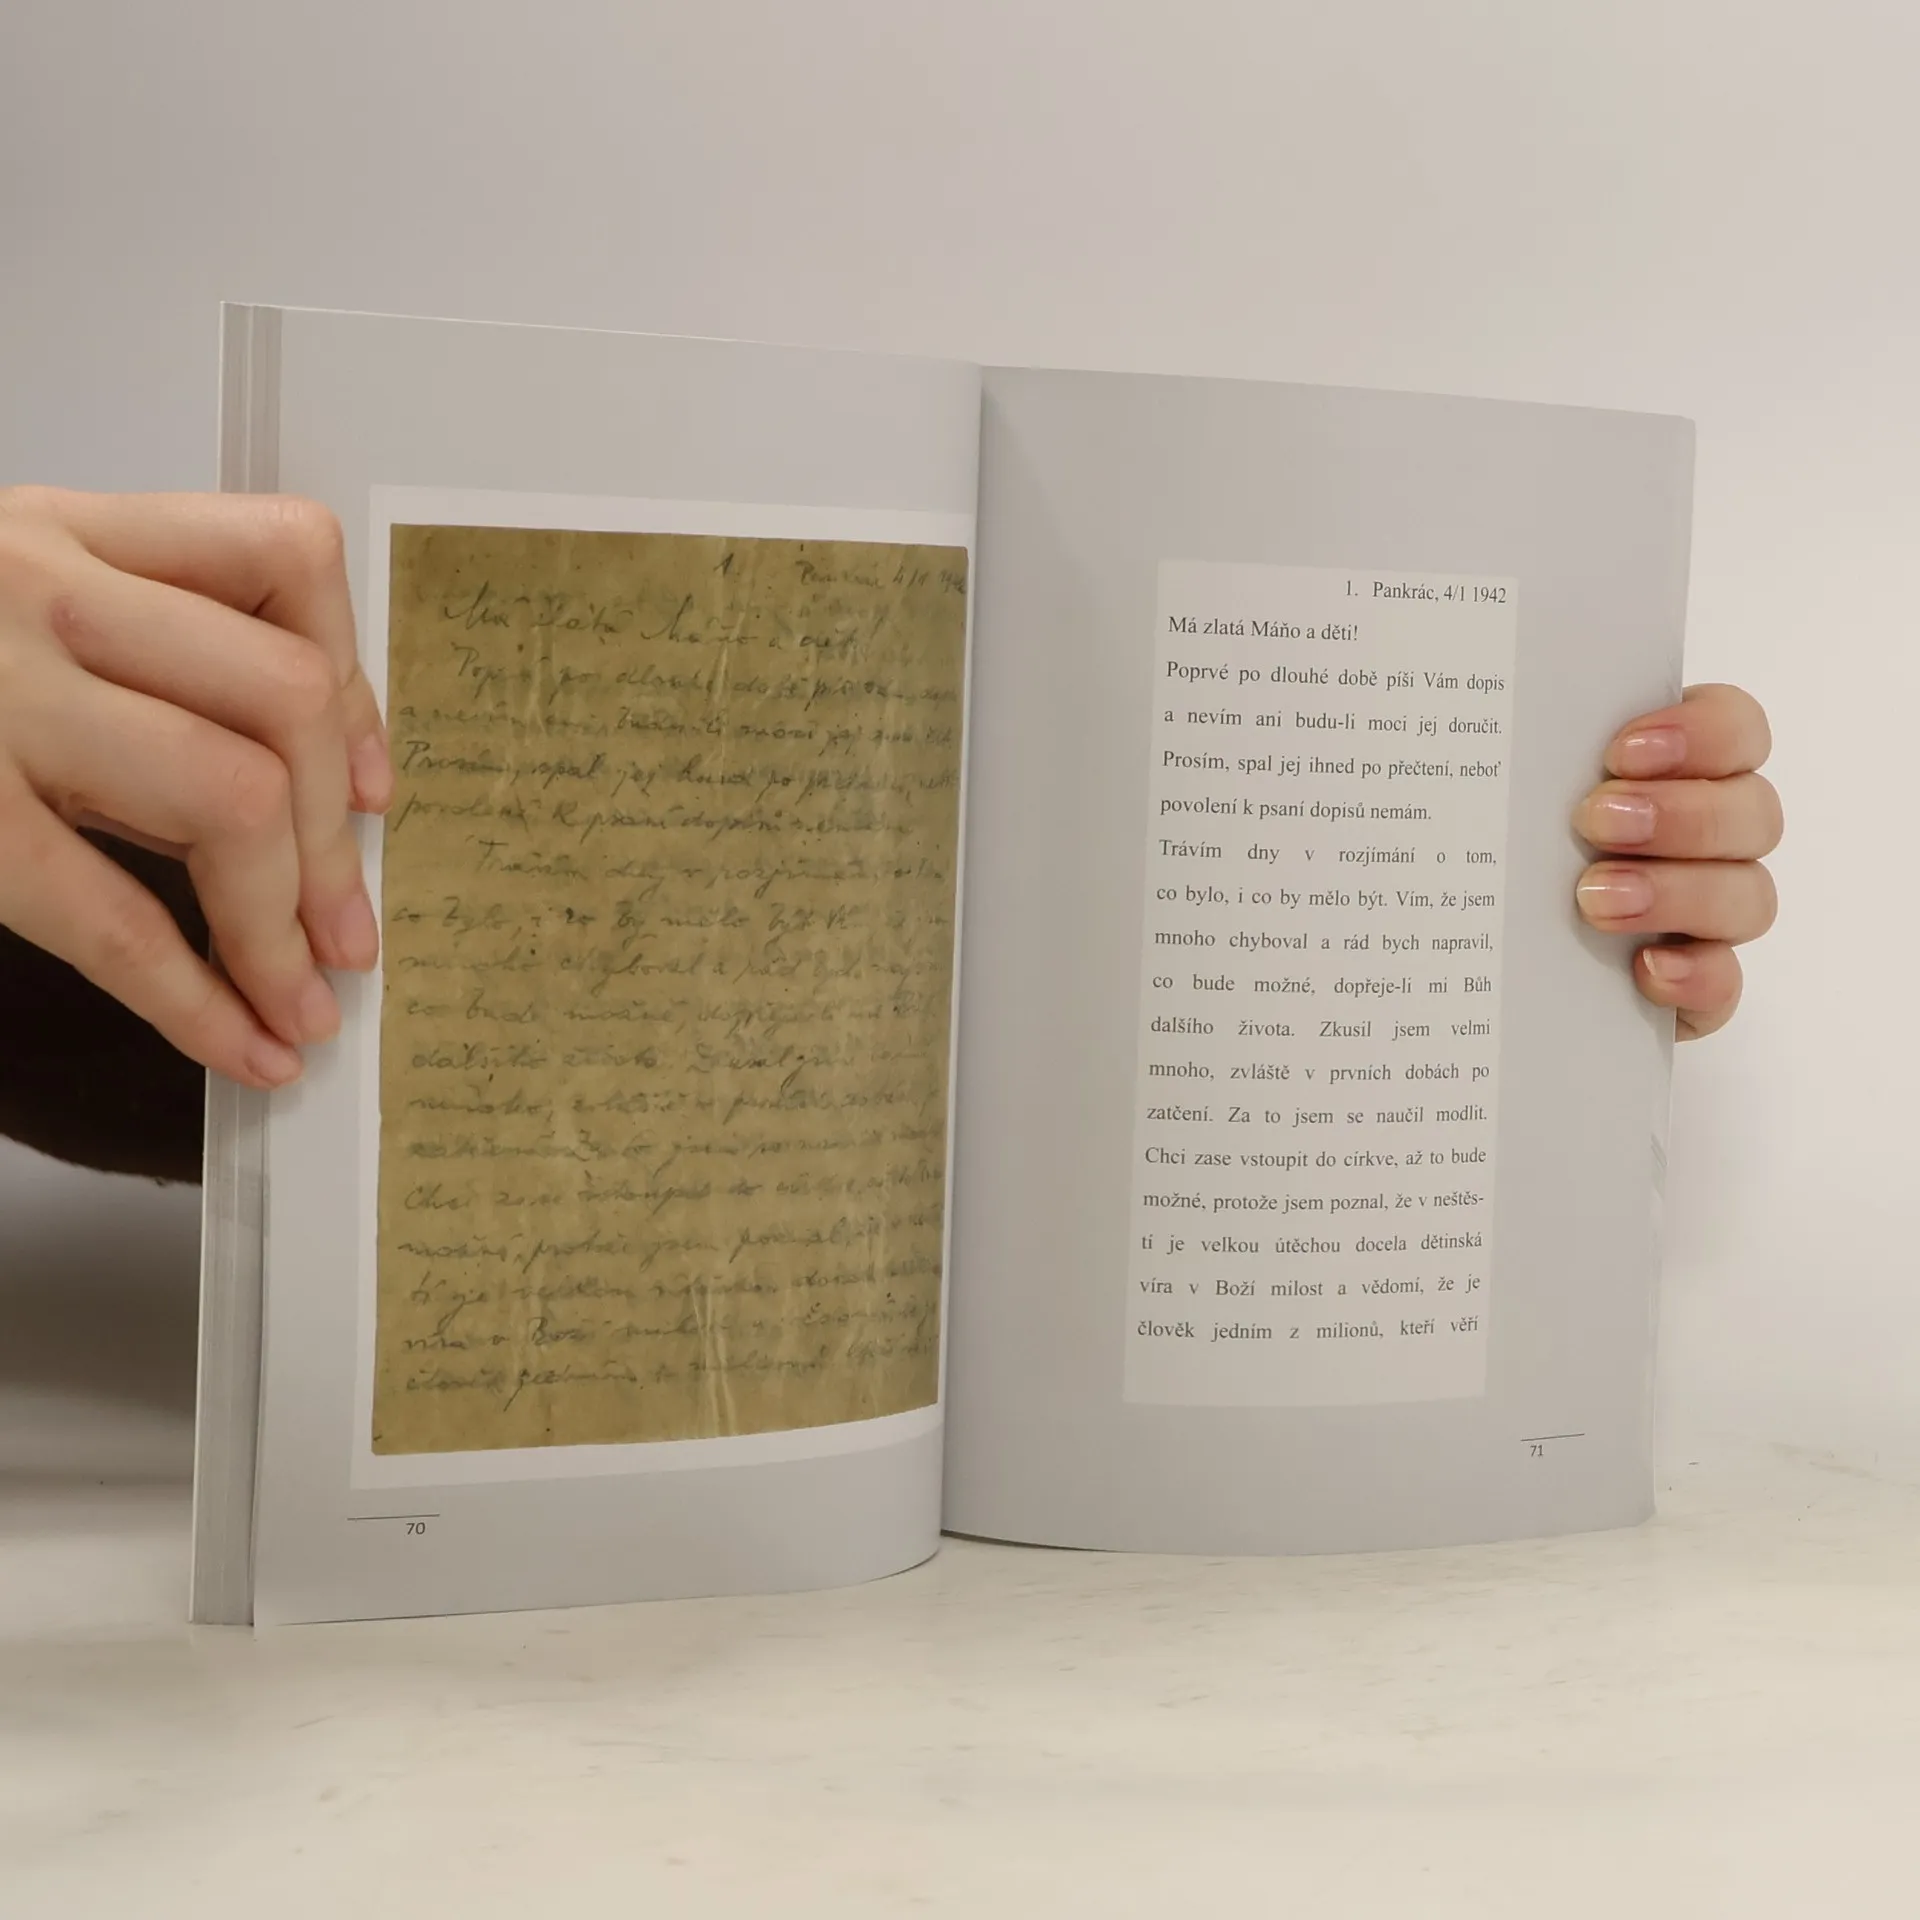 1. Pankrác 4/1 1942
Má zlatá Máňo a děti!
Poprvé po dlouhé době píši Vám dopis
a nevím ani, budu-li moci jej doručit.
Prosím, spal jej ihned po přečtení, neboť
povolení k psaní dopisů nemám.
Trávím dny v rozjímání o tom,
co bylo, i co by mělo být. Vím, že jsem
mnoho chyboval a rád bych napravil,
co bude možné, dopřeje-li mi Bůh
dalšího života. Zkusil jsem velmi
mnoho, zvláště v prvních dobách po
zatčení. Za to jsem se naučil modlit.
Chci zase vstoupit do církve, až to bude
možné, protože jsem poznal, že v neštěs-
tí je velkou útěchou docela dětinská
víra v Boží milost a vědomí, že je
člověk jedním z milionů, kteří věří
70
1. Pankrác, 4/1 1942
Má zlatá Máňo a děti!
Poprvé po dlouhé době píši Vám dopis
a nevím ani budu-li moci jej doručit.
Prosím, spal jej ihned po přečtení, neboť
povolení k psaní dopisů nemám.
Trávím dny v rozjímání o tom,
co bylo, i co by mělo být. Vím, že jsem
mnoho chyboval a rád bych napravil,
co bude možné, dopřeje-li mi Bůh
dalšího života. Zkusil jsem velmi
mnoho, zvláště v prvních dobách po
zatčení. Za to jsem se naučil modlit.
Chci zase vstoupit do církve, až to bude
možné, protože jsem poznal, že v neštěs-
tí je velkou útěchou docela dětinská
víra v Boží milost a vědomí, že je
člověk jedním z milionů, kteří věří
71